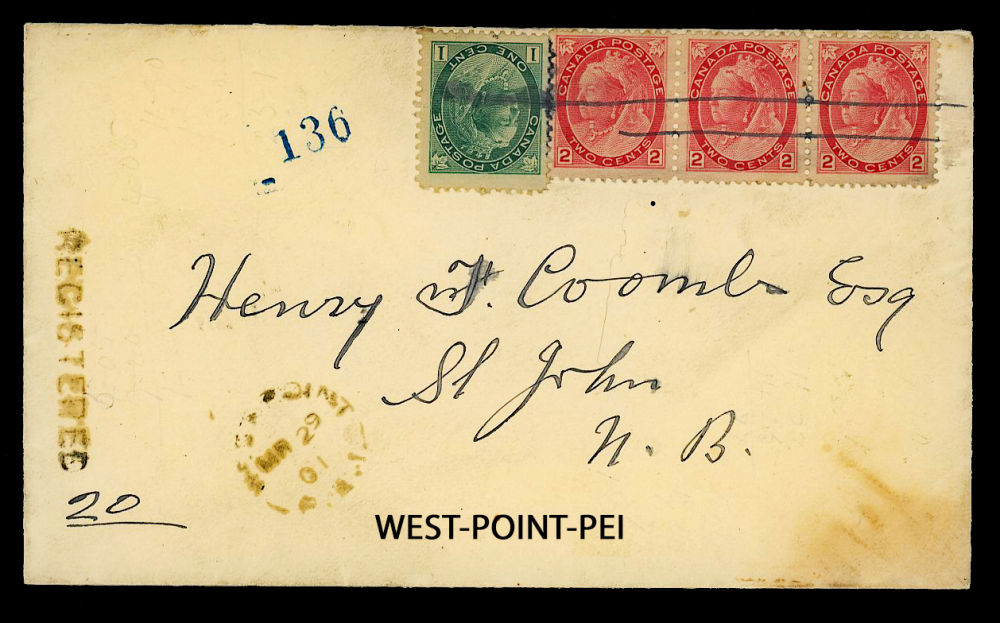 1 1
ONE CENT
CANADA POSTAGE
CANADA POSTAGE
2 TWO CENTS 2
CANADA POSTAGE
2 TWO CENTS 2
CANADA POSTAGE
2 TWO CENTS 2
136
REGISTERED
Henry F. Coombs Esq
St John
N. B.
POINT
MR 29
01
20
WEST-POINT-PEI